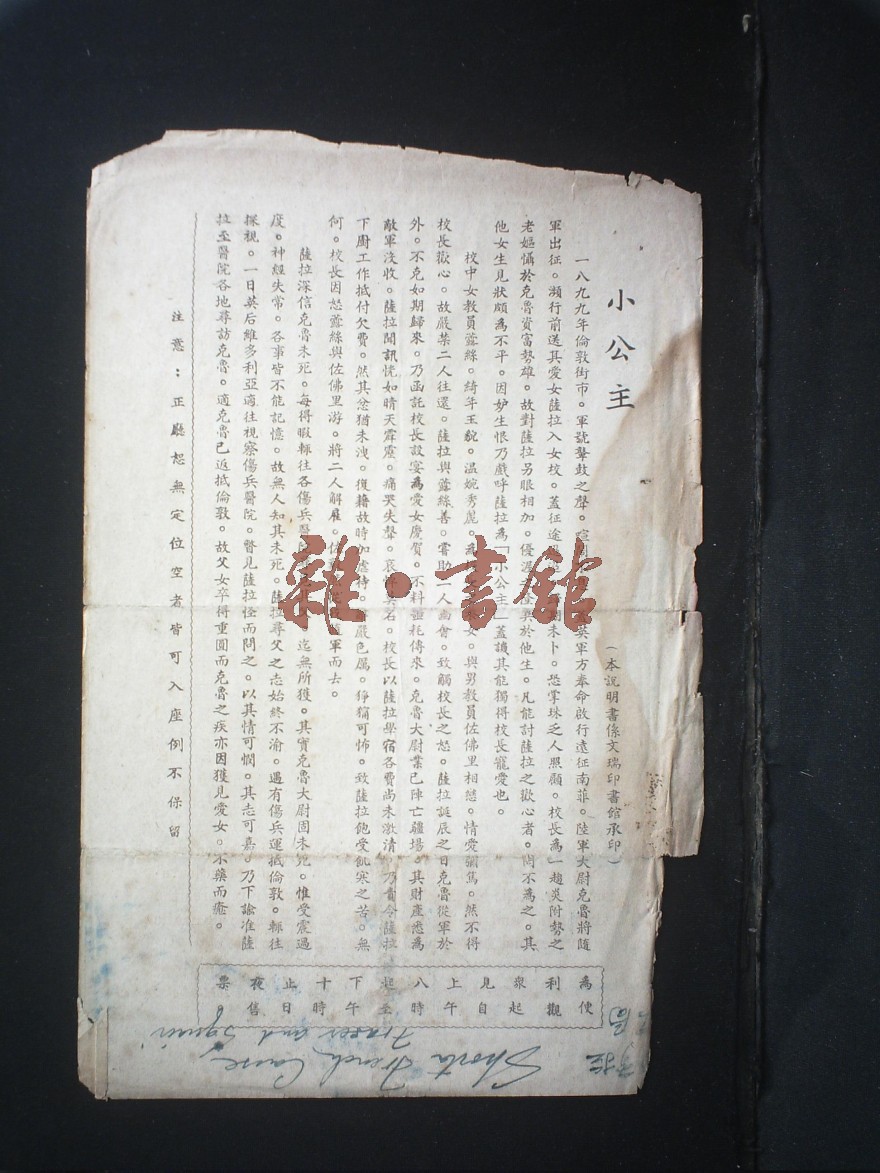 小公主
(本說明書係文瑞印書館承印)
一八九九年倫敦街市。軍號鼙鼓之聲。英軍方奉命啟行遠征南菲。陸軍大尉克魯將隨
軍出征。瀕行前送其愛女薩拉入女校。蓋征途未卜。恐掌珠乏人照顧。校長為一趨炎附勢之
老嫗懾於克魯資富勢雄。故對薩拉另眼相加。優渥異於他生。凡能討薩拉之歡心者。罔不為之。其
他女生見狀頗為不平。因妒生恨乃戲呼薩拉為「小公主」蓋譏其能獨得校長寵愛也。
校中女教員露絲。綺年玉貌。溫婉秀麗。女。與男教員佐佛里相戀。情愛彌篤。然不得
校長歡心。故嚴禁二人往還。薩拉與露絲善。嘗助二人幽會。致觸校長之怒。薩拉誕辰之日克魯從軍於
外。不克如期歸來。乃函託校長設宴為愛女慶賀。不料噩耗傳來。克魯大尉業已陣亡疆場。其財產悉為
敵軍沒收。薩拉聞訊恍如晴天霹靂。痛哭失聲。哀其名。校長以薩拉學宿各費尚未激清。乃責令薩拉
下廚工作抵付欠費。然其忿猶未洩。復藉故時加虐待。嚴色厲。猙獰可怖。致薩拉飽受飢寒之苦。無
何。校長因怒露絲與佐佛里游。將二人解雇。軍而去。
薩拉深信克魯未死。每得暇輒往各傷兵醫迄無所獲。其實克魯大尉固未死。惟受震過
度。神經失常。各事皆不能記憶。故無人知其未死。薩拉尋父之志始終不渝。遇有傷兵運抵倫敦。輒往
探視。一日英后維多利亞適往視察傷兵醫院。瞥見薩拉怪而問之。以其情可憫。其志可嘉。乃下諭准薩
拉至醫院各地尋訪克魯。適克魯已返抵倫敦。故父女卒得重圓而克魯之疾亦因獲見愛女。不藥而癒。
注意：正廳恕無定位空者皆可入座例不保留
為便
利觀
眾起
見自
上午
八時
起至
下午
十時
止日
夜售
票
Shorta French Course
Frazer and Squair
雜·書館